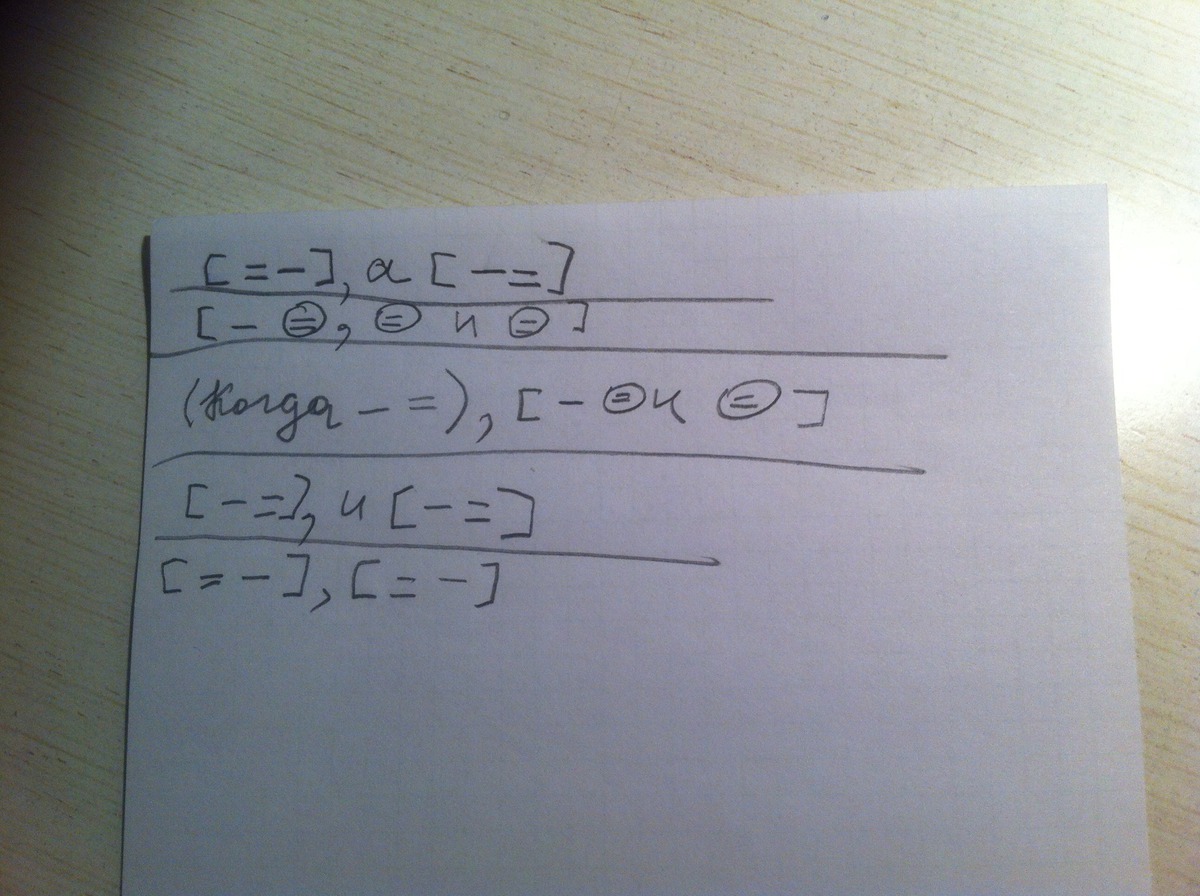 [=-], а [-=]
[-⊜, ⊜ и ⊜]
(Когда -=), [-⊜ и ⊜]
[-=], и [-=]
[=-], [=-]